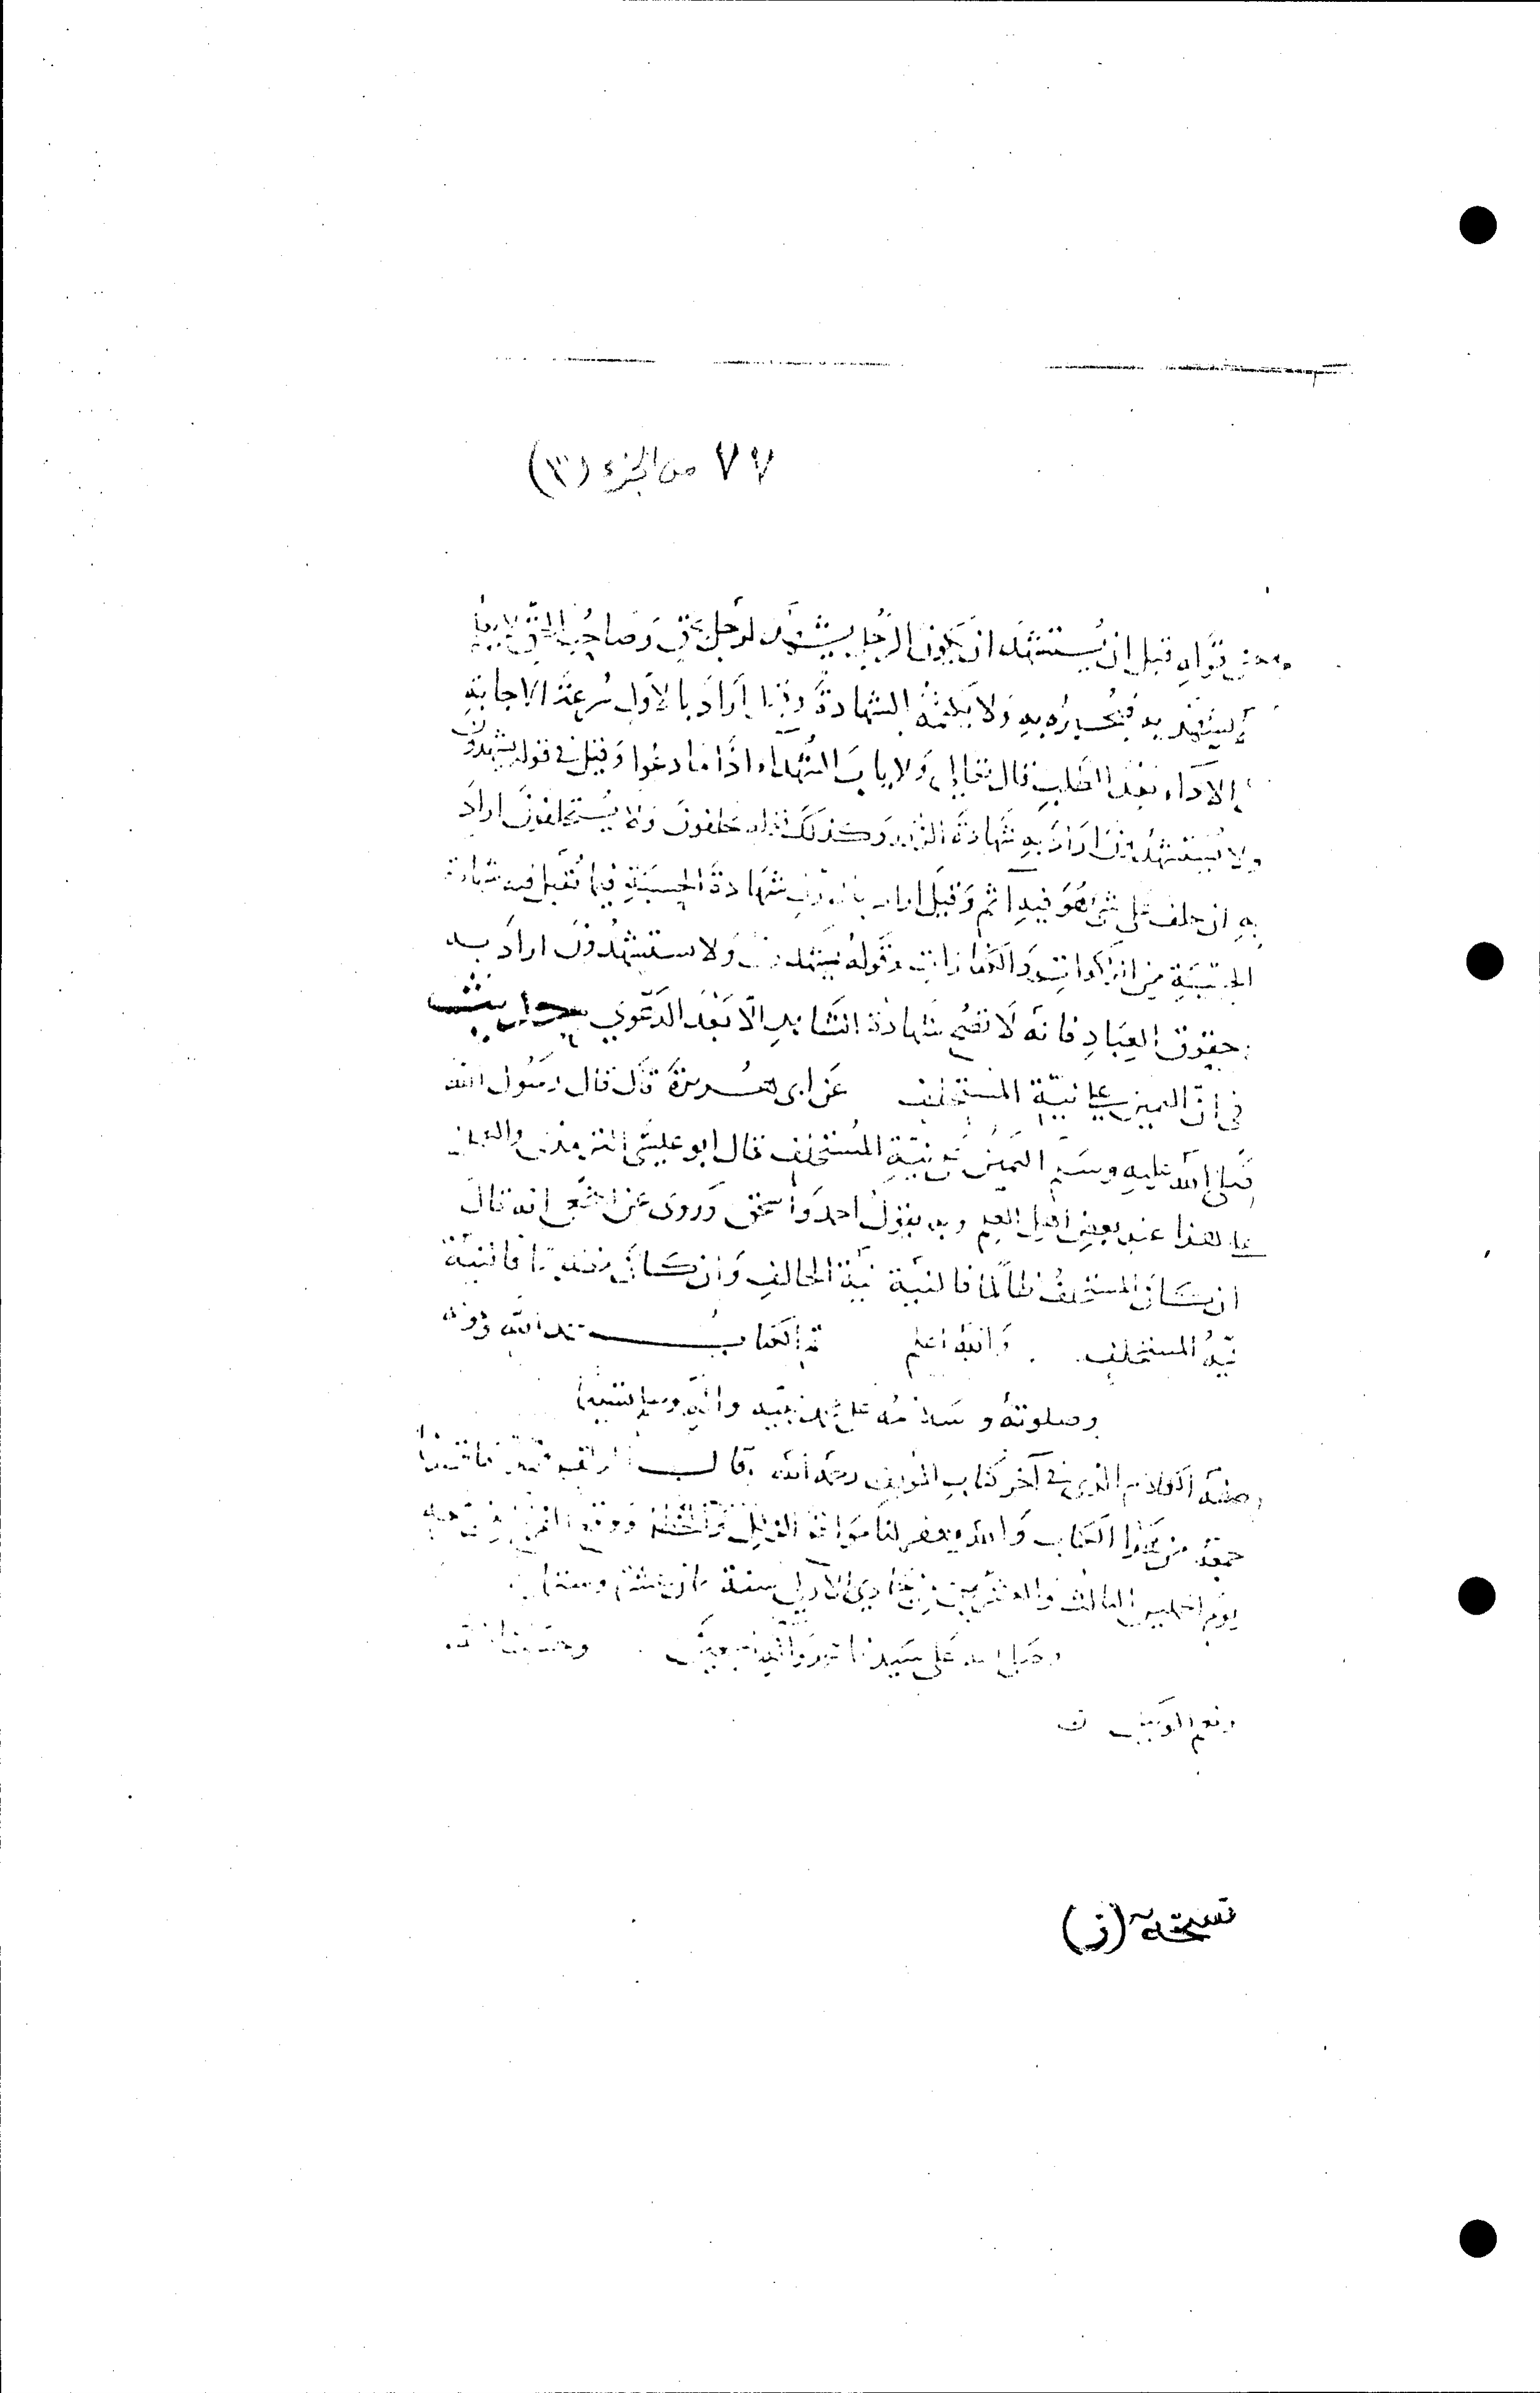 ٧٧ من الجزء (٣)
ومعنى قوله قبل ان يُستشهد ان يكون الرجل يشهد لرجل بحق وصاحب الحق لا يعلم
ليشهد به فيخبره به ولا يكتمه الشهادة وقيل اراد بالاول سرعة الاجابة
الاداء بعد الطلب قال تعالى ولا ياب الشهداء اذا ما دعوا وقيل في قوله يشهدون
ولا يستشهدون اراد به شهادة الزور وكذلك قوله يحلفون ولا يستحلفون اراد
به ان حلف على شئ هو فيه اثم وقيل اراد شهادة الحسبة فيما تقبل فيه شهادة
الحسبة من الزكوات والكفارات وقوله يشهدون ولا يستشهدون اراد به
حقوق العباد فانه لا تصح شهادة الشاهد الا بعد الدعوى حديث
في ان اليمين على نية المستحلف عن ابى هريرة قال قال رسول الله
صلى الله عليه وسلم اليمين على نية المستحلف قال ابو عيسى الترمذى والعمل
على هذا عند بعض اهل العلم وبه يقول احمد واسحق وروى عن النخعي انه قال
ان كان المستحلف ظالما فالنية نية الحالف وان كان مظلوما فالنية
نية المستحلف . والله اعلم تم الكتاب بحمد الله وعونه
وصلوته وسلامه على محمد نبيه واله وسلم تسليما
صفة الكلام الذى فى آخر كتاب المؤلف رحمه الله قال
جمعه من هذا الكتاب والله يغفر لنا الزلل ووقع الفراغ من
يوم الخميس الثالث والعشرين من جمادى الاولى سنة
وصلى الله على سيدنا محمد واله اجمعين . وحسبنا الله
ونعم الوكيل
نسخة (ز)